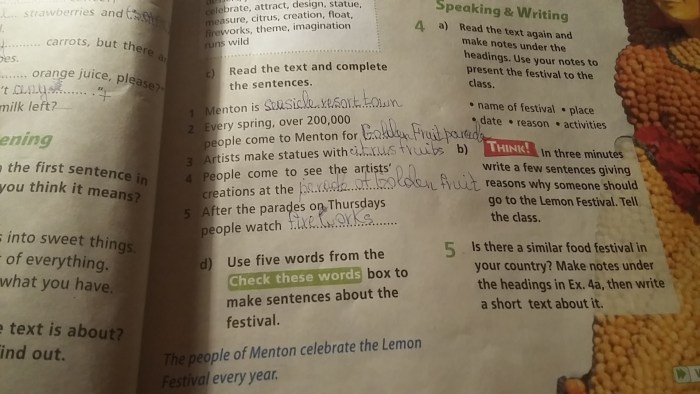 strawberries and
carrots, but there
orange juice, please?
't any
milk left?
ening
the first sentence in
you think it means?
into sweet things.
of everything.
what you have.
text is about?
ind out.
celebrate, attract, design, statue,
measure, citrus, creation, float,
fireworks, theme, imagination
runs wild
c) Read the text and complete
the sentences.
1 Menton is seaside resort town
2 Every spring, over 200,000
people come to Menton for Golden Fruit parade
3 Artists make statues with citrus fruits
4 People come to see the artists'
creations at the parade of Golden Fruit
5 After the parades on Thursdays
people watch fireworks
d) Use five words from the
Check these words box to
make sentences about the
festival.
The people of Menton celebrate the Lemon
Festival every year.
Speaking & Writing
4 a) Read the text again and
make notes under the
headings. Use your notes to
present the festival to the
class.
• name of festival • place
• date • reason • activities
b) THINK! In three minutes
write a few sentences giving
reasons why someone should
go to the Lemon Festival. Tell
the class.
5 Is there a similar food festival in
your country? Make notes under
the headings in Ex. 4a, then write
a short text about it.